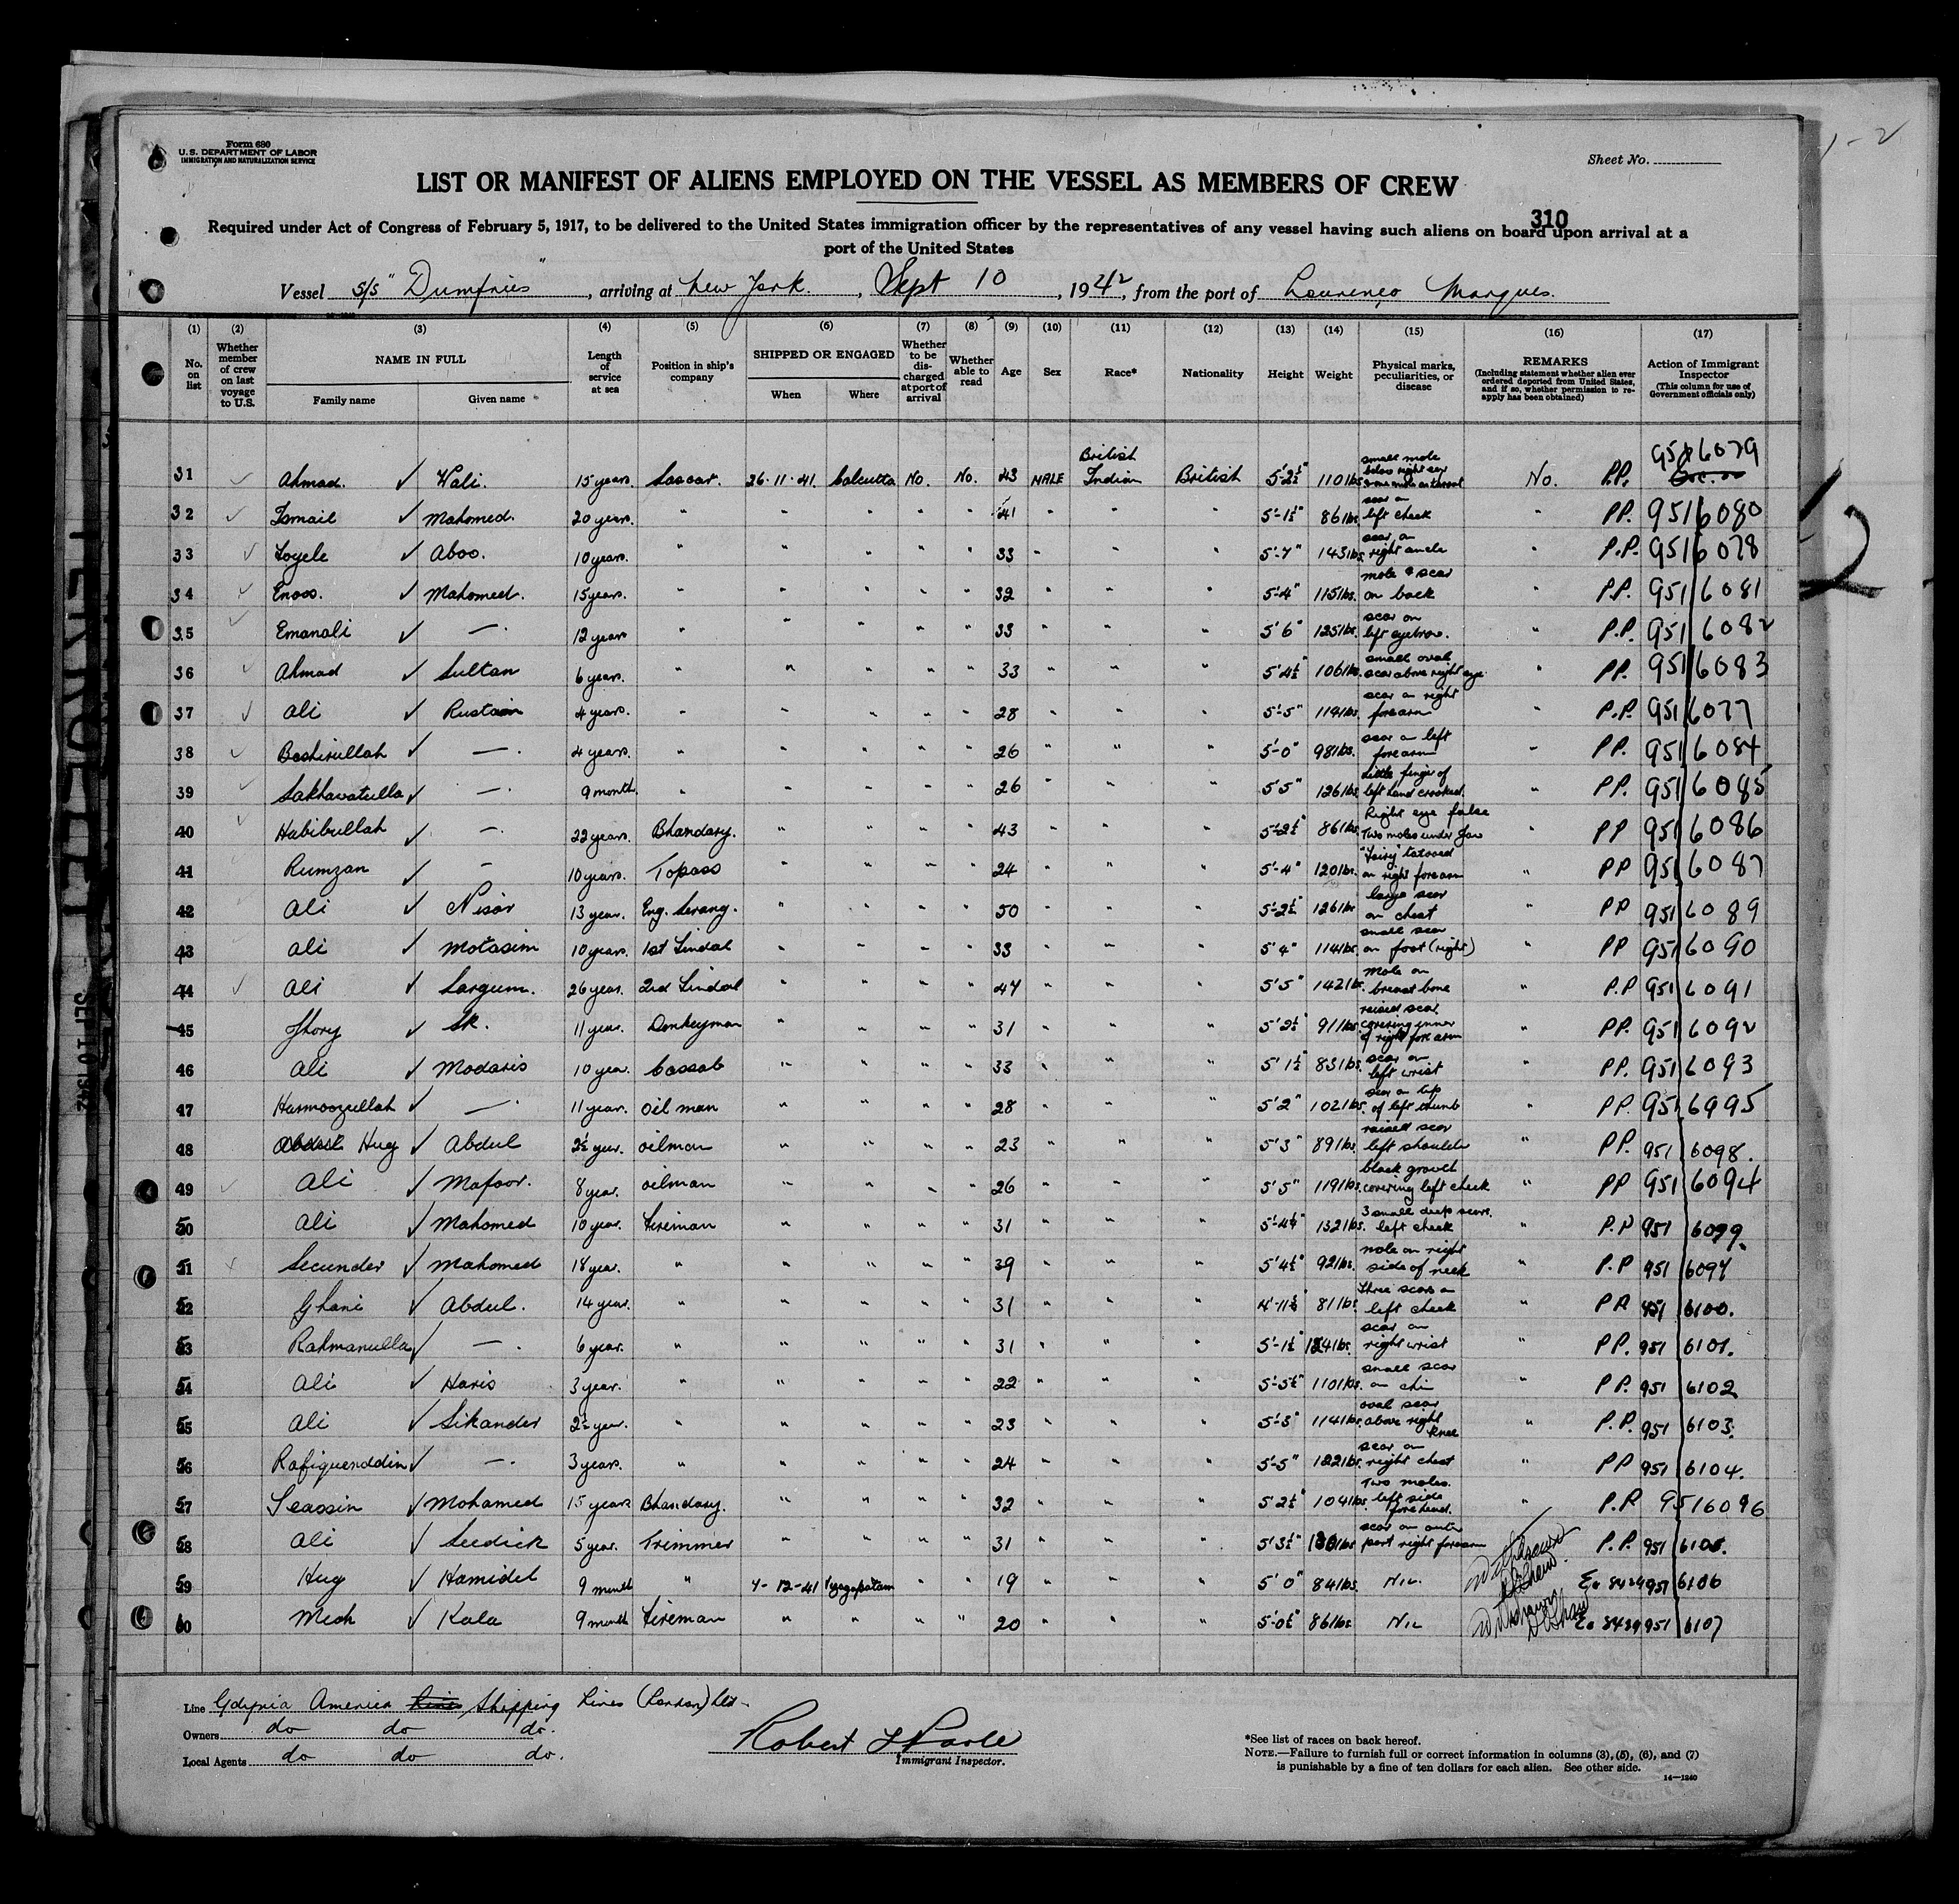 Form 680
U.S. DEPARTMENT OF LABOR
IMMIGRATION AND NATURALIZATION SERVICE
Sheet No.
1-2
LIST OR MANIFEST OF ALIENS EMPLOYED ON THE VESSEL AS MEMBERS OF CREW
310
Required under Act of Congress of February 5, 1917, to be delivered to the United States immigration officer by the representatives of any vessel having such aliens on board upon arrival at a
port of the United States
Vessel S/S "Dumfries", arriving at New York, Sept 10, 1942, from the port of Lourenço Marques.
(1) (2) (3) (4) (5) (6) (7) (8) (9) (10) (11) (12) (13) (14) (15) (16) (17)
No. on list
Whether member of crew on last voyage to U.S.
NAME IN FULL
Family name Given name
Length of service at sea
Position in ship's company
SHIPPED OR ENGAGED
When Where
Whether to be discharged at port of arrival
Whether able to read
Age
Sex
Race*
Nationality
Height
Weight
Physical marks, peculiarities, or disease
REMARKS
(Including statement whether alien ever ordered deported from United States, and if so, whether permission to reapply has been obtained)
Action of Immigrant Inspector
(This column for use of Government officials only)
31 ✓ Ahmad. ✓ Wali. 15 years. 26-11-41. Calcutta No. No. 43 MALE British Indian British 5'2½" 110 lbs. small mole below right ear No. P.P. 6079
32 ✓ Ismail ✓ Mahomed. 20 years. " " " " " 41 " " " 5'-1½" 86 lbs. scar on left cheek " PP. 951 6080
33 ✓ Toyele ✓ Aboo. 10 years. " " " " " 33 " " " 5'-7" 143 lbs. scar on right ancle " P.P. 951 6078
34 ✓ Enoos. ✓ Mahomed. 15 years. " " " " " 32 " " " 5'-4" 115 lbs. mole & scar on back " PP. 951 6081
35 ✓ Emanali ✓ —. 12 years " " " " " 33 " " " 5'6" 125 lbs. scar on left eyebrow. " P.P. 951 6082
36 ✓ Ahmad ✓ Sultan 6 years. " " " " " 33 " " " 5'4½" 106 lbs. small oval scar above right eye " PP. 951 6083
37 ✓ Ali ✓ 4 years. " " " " " 28 " " " 5'-5" 119 lbs. scar on right forearm " P.P. 951 6077
38 ✓ Boshirullah ✓ —. 4 years. " " " " " 26 " " " 5'-0" 98 lbs. scar on left forearm " PP. 951 6084
39 ✓ Sakhavatulla ✓ —. 9 month. " " " " " 26 " " " 5'5" 126 lbs. Little finger of left hand crooked. " PP. 951 6085
40 ✓ Habibullah ✓ —. 22 years. Bhandary. " " " " 43 " " " 5'-2½" 86 lbs. Right eye false Two moles under jaw " PP 951 6086
41 Rumzan ✓ — 10 years. Topass " " " " 24 " " " 5'-4" 120 lbs. tatooed on right forearm " PP 951 6087
42 Ali ✓ Nisar 13 year. Eng. Serang. " " " " 50 " " " 5'-2½" 126 lbs large scar on chest " PP 951 6089
43 Ali ✓ Motasim 10 years. 1st Tindal " " " " 33 " " " 5'4" 114 lbs. small scar on foot (right) " PP 951 6090
44 ✓ Ali ✓ Sargum. 26 year. 2nd Tindal " " " " 47 " " " 5'5" 142 lbs. Mole on breast bone " P.P 951 6091
45 Jhory ✓ Sk. 11 year. Donkeyman " " " " 31 " " " 5'2½" 91 lbs. raised scar covering inner of right fore arm " PP. 951 6092
46 Ali ✓ Modaris 10 year. Cassab " " " " 33 " " " 5'1½" 83 lbs. scar on left wrist " PP. 951 6093
47 Harmoozullah ✓ —. 11 year. Oil man " " " " 28 " " " 5'2" 102 lbs. scar on tip of left thumb " PP. 951 6095
48 Huq ✓ Abdul 2½ year. oilman " " " " 23 " " " 5'3" 89 lbs. raised scar left shoulder " PP. 951 6098.
49 ✓ Ali ✓ Mafoor. 8 year. oilman " " " " 26 " " " 5'5" 119 lbs. black growth covering left cheek " PP 951 6094
50 Ali ✓ Mahomed 10 year. Fireman " " " " 31 " " " 5'-4½" 132 lbs. 3 small deep scars. left cheek " P.P 951 6099.
51 Secunder ✓ Mahomed 18 year. " " " " " 39 " " " 5'4½" 92 lbs. mole on right side of neck " P.P 951 6097
52 Ghani ✓ Abdul. 14 year. " " " " " 31 " " " 4'-11½" 81 lbs Three scars on left cheek " PP 951 6100.
53 Rahmanulla ✓ —. 6 year. " " " " " 31 " " " 5'-1½" 124 lbs. scar on right wrist " PP. 951 6101.
54 Ali ✓ Haris 3 year. " " " " " 22 " " " 5'-5½" 110 lbs. small scar on chin " PP. 951 6102
55 Ali ✓ Sikander 2½ year. " " " " " 23 " " " 5'-3" 114 lbs. oval scar above right knee " P.P. 951 6103.
56 Rafiquenddin ✓ —. 3 years. " " " " " 24 " " " 5'-5" 122 lbs. scar on right chest " PP 951 6104.
57 Seassin ✓ Mohamed 15 years Bhandary. " " " " 32 " " " 5'2½" 104 lbs. Two moles. left side forehead. " P.P. 951 6096
58 Ali ✓ Seedick 5 year. Trimmer " " " " 31 " " " 5'3½" scar on outer part right forearm P.P. 951
59 Huq ✓ Hamidel 9 month " 4-12-41 Vizagapatam " " 19 " " " 5'0" 84 lbs. NIL. Withdrawn Shaw 951 6106
60 Miah ✓ Kala 9 month Fireman " " " " 20 " " " 5'-0½" 86 lbs. NIL Withdrawn Shaw 951 6107
12
SEP 10 1942
Line Gdynia America Shipping Lines (London) Ltd.
Owners do do do.
Local Agents do do do.
Robert
Immigrant Inspector.
*See list of races on back hereof.
NOTE.—Failure to furnish full or correct information in columns (3), (5), (6), and (7)
is punishable by a fine of ten dollars for each alien. See other side.
14—1240